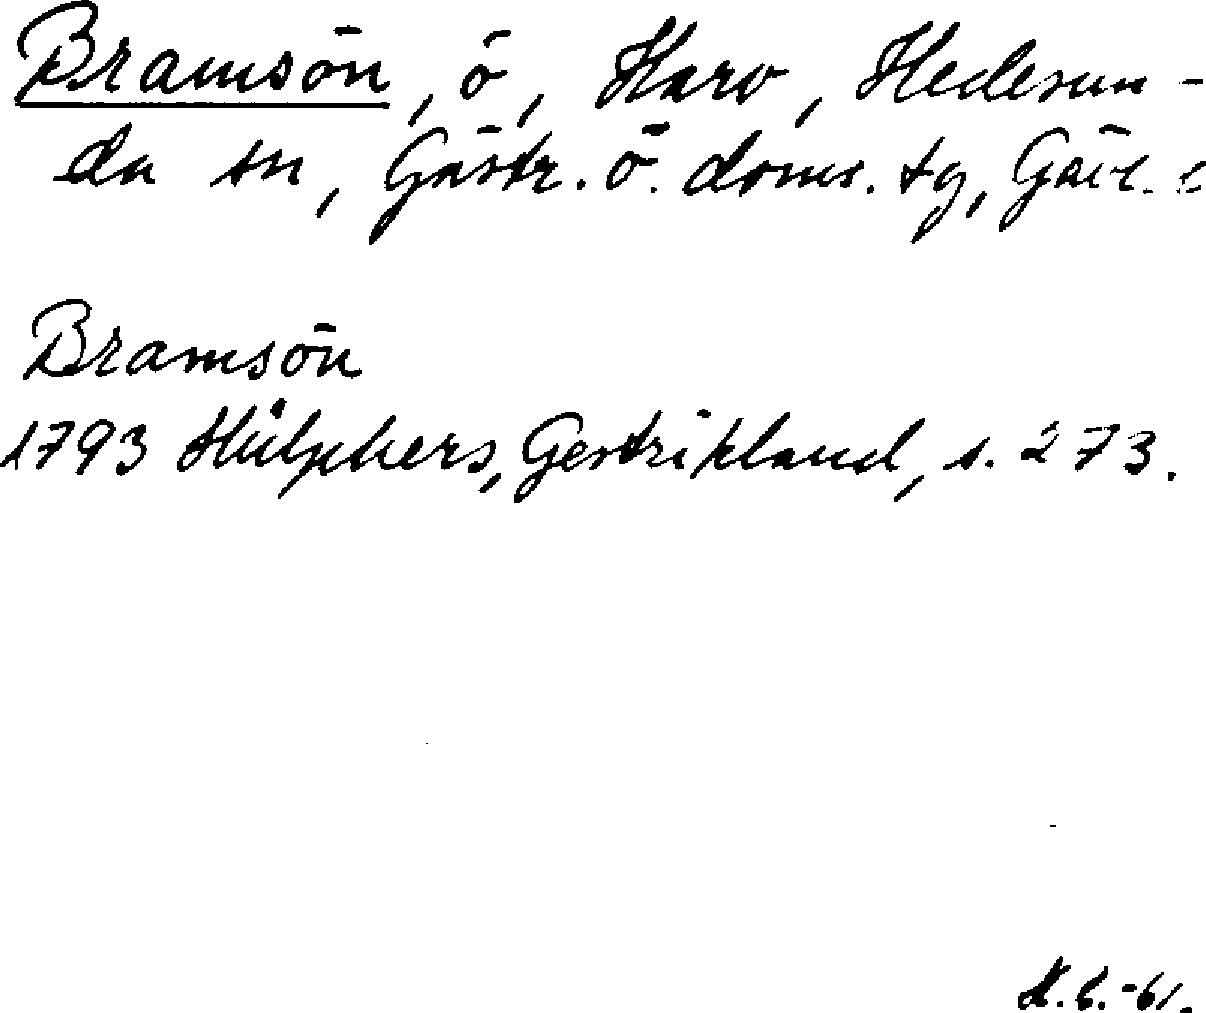 Bramsön, ö, Harv, Hedesun-
da sn, Gästr. ö. doms. tg, Gävl. l
Bramsön
1793 Hülphers, Gestrikland, s. 273.